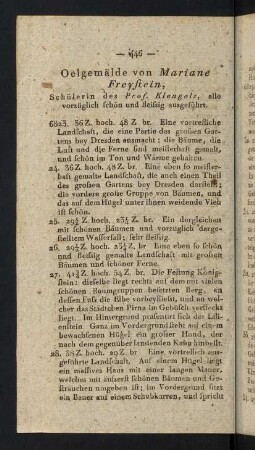 — 446 —
Oelgemälde von Mariane
Freystein,
Schülerin des Prof. Klengels, alle
vorzüglich schön und fleissig ausgeführt.
6823. 36 Z. hoch. 48 Z. br. Eine vortrefliche
Landschaft, die eine Partie des großen Gar-
tens bey Dresden ausmacht; die Bäume, die
Luft und die Ferne sind meisterhaft gemalt,
und schön im Ton und Wärme gehalten.
24. 36 Z. hoch. 48 Z. br. Eine eben so meister-
haft gemalte Landschaft, die auch einen Theil
des großen Gartens bey Dresden darstellt;
die vordere große Gruppe von Bäumen, und
das auf dem Hügel unter ihnen weidende Vieh
ist schön.
25. 29½ Z. hoch. 23½ Z. br. Ein dergleichen
mit schönen Bäumen und vorzüglich darge-
stelltem Wasserfall; sehr fleissig.
26. 29½ Z. hoch. 23½ Z. br. Eine eben so schön
und fleissig gemalte Landschaft mit großen
Bäumen und schöner Ferne.
27. 41¾ Z. hoch. 54 Z. br. Die Festung König-
stein: dieselbe liegt nebst einem mit vielen
schönen Baumgruppen besetzten Berg, an
dessen Fuß die Elbe vorbeyfliesst, und an wel-
cher das Städtchen Pirna im Gebüsch versteckt
liegt. Im Hintergrund präsentirt sich der Lili-
enstein. Ganz im Vordergrund steht auf ei-
nem bewachsenen Hügel ein großer Hund, der
den gegen über laufenden Katzen hinbellt.
28. 38 Z. hoch. 29 Z. br. Eine vörtreflich aus-
geführte Landschaft. Auf einem Hügel liegt
ein massives Haus mit einer langen Mauer,
welches mit äusserst schönen Bäumen und Ge-
sträuchen umgeben ist; im Vordergrund sitzt
ein Bauer auf einem Schubkarren, und spricht